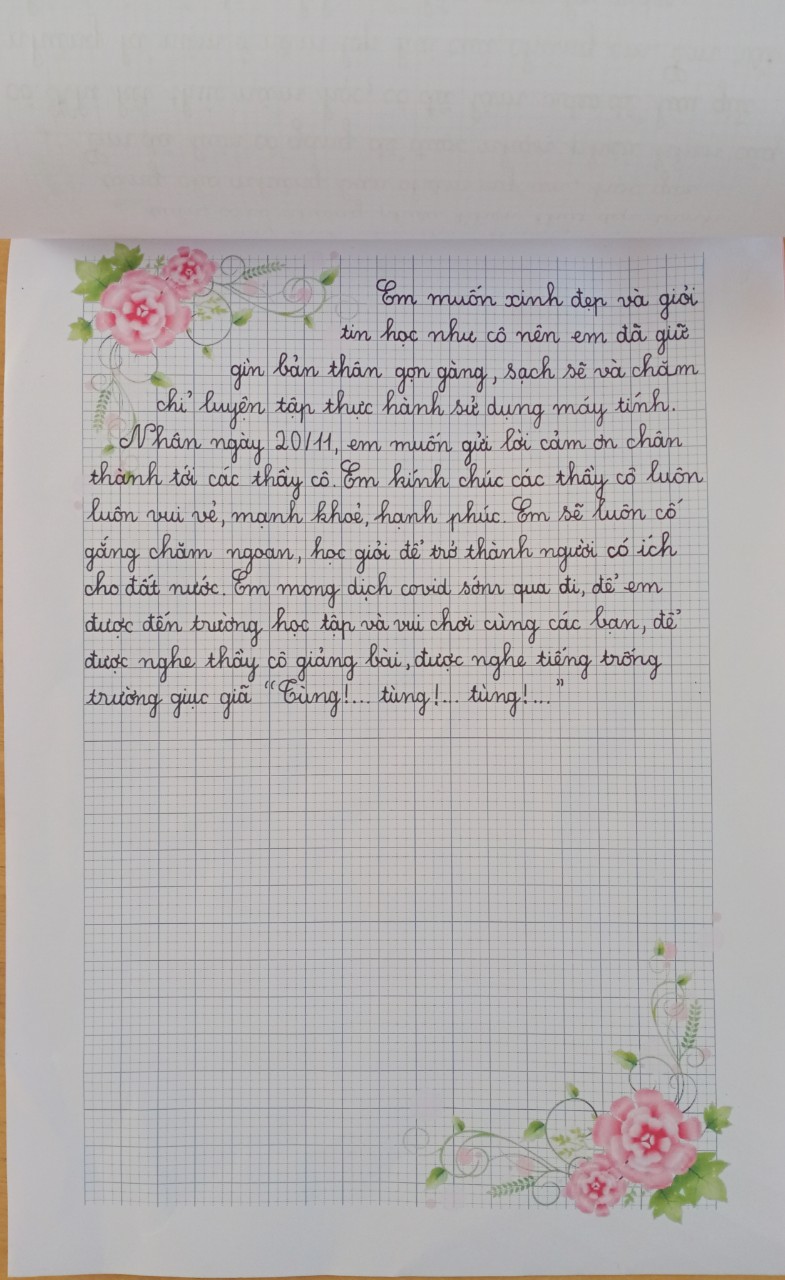 Em muốn xinh đẹp và giỏi
tin học như cô nên em đã giữ
gìn bản thân gọn gàng, sạch sẽ và chăm
chỉ luyện tập thực hành sử dụng máy tính.
Nhân ngày 20/11, em muốn gửi lời cảm ơn chân
thành tới các thầy cô. Em kính chúc các thầy cô luôn
luôn vui vẻ, mạnh khoẻ, hạnh phúc. Em sẽ luôn cố
gắng chăm ngoan, học giỏi để trở thành người có ích
cho đất nước. Em mong dịch covid sớm qua đi, để em
được đến trường học tập và vui chơi cùng các bạn, để
được nghe thầy cô giảng bài, được nghe tiếng trống
trường giục giã "Tùng!... tùng!... tùng!..."